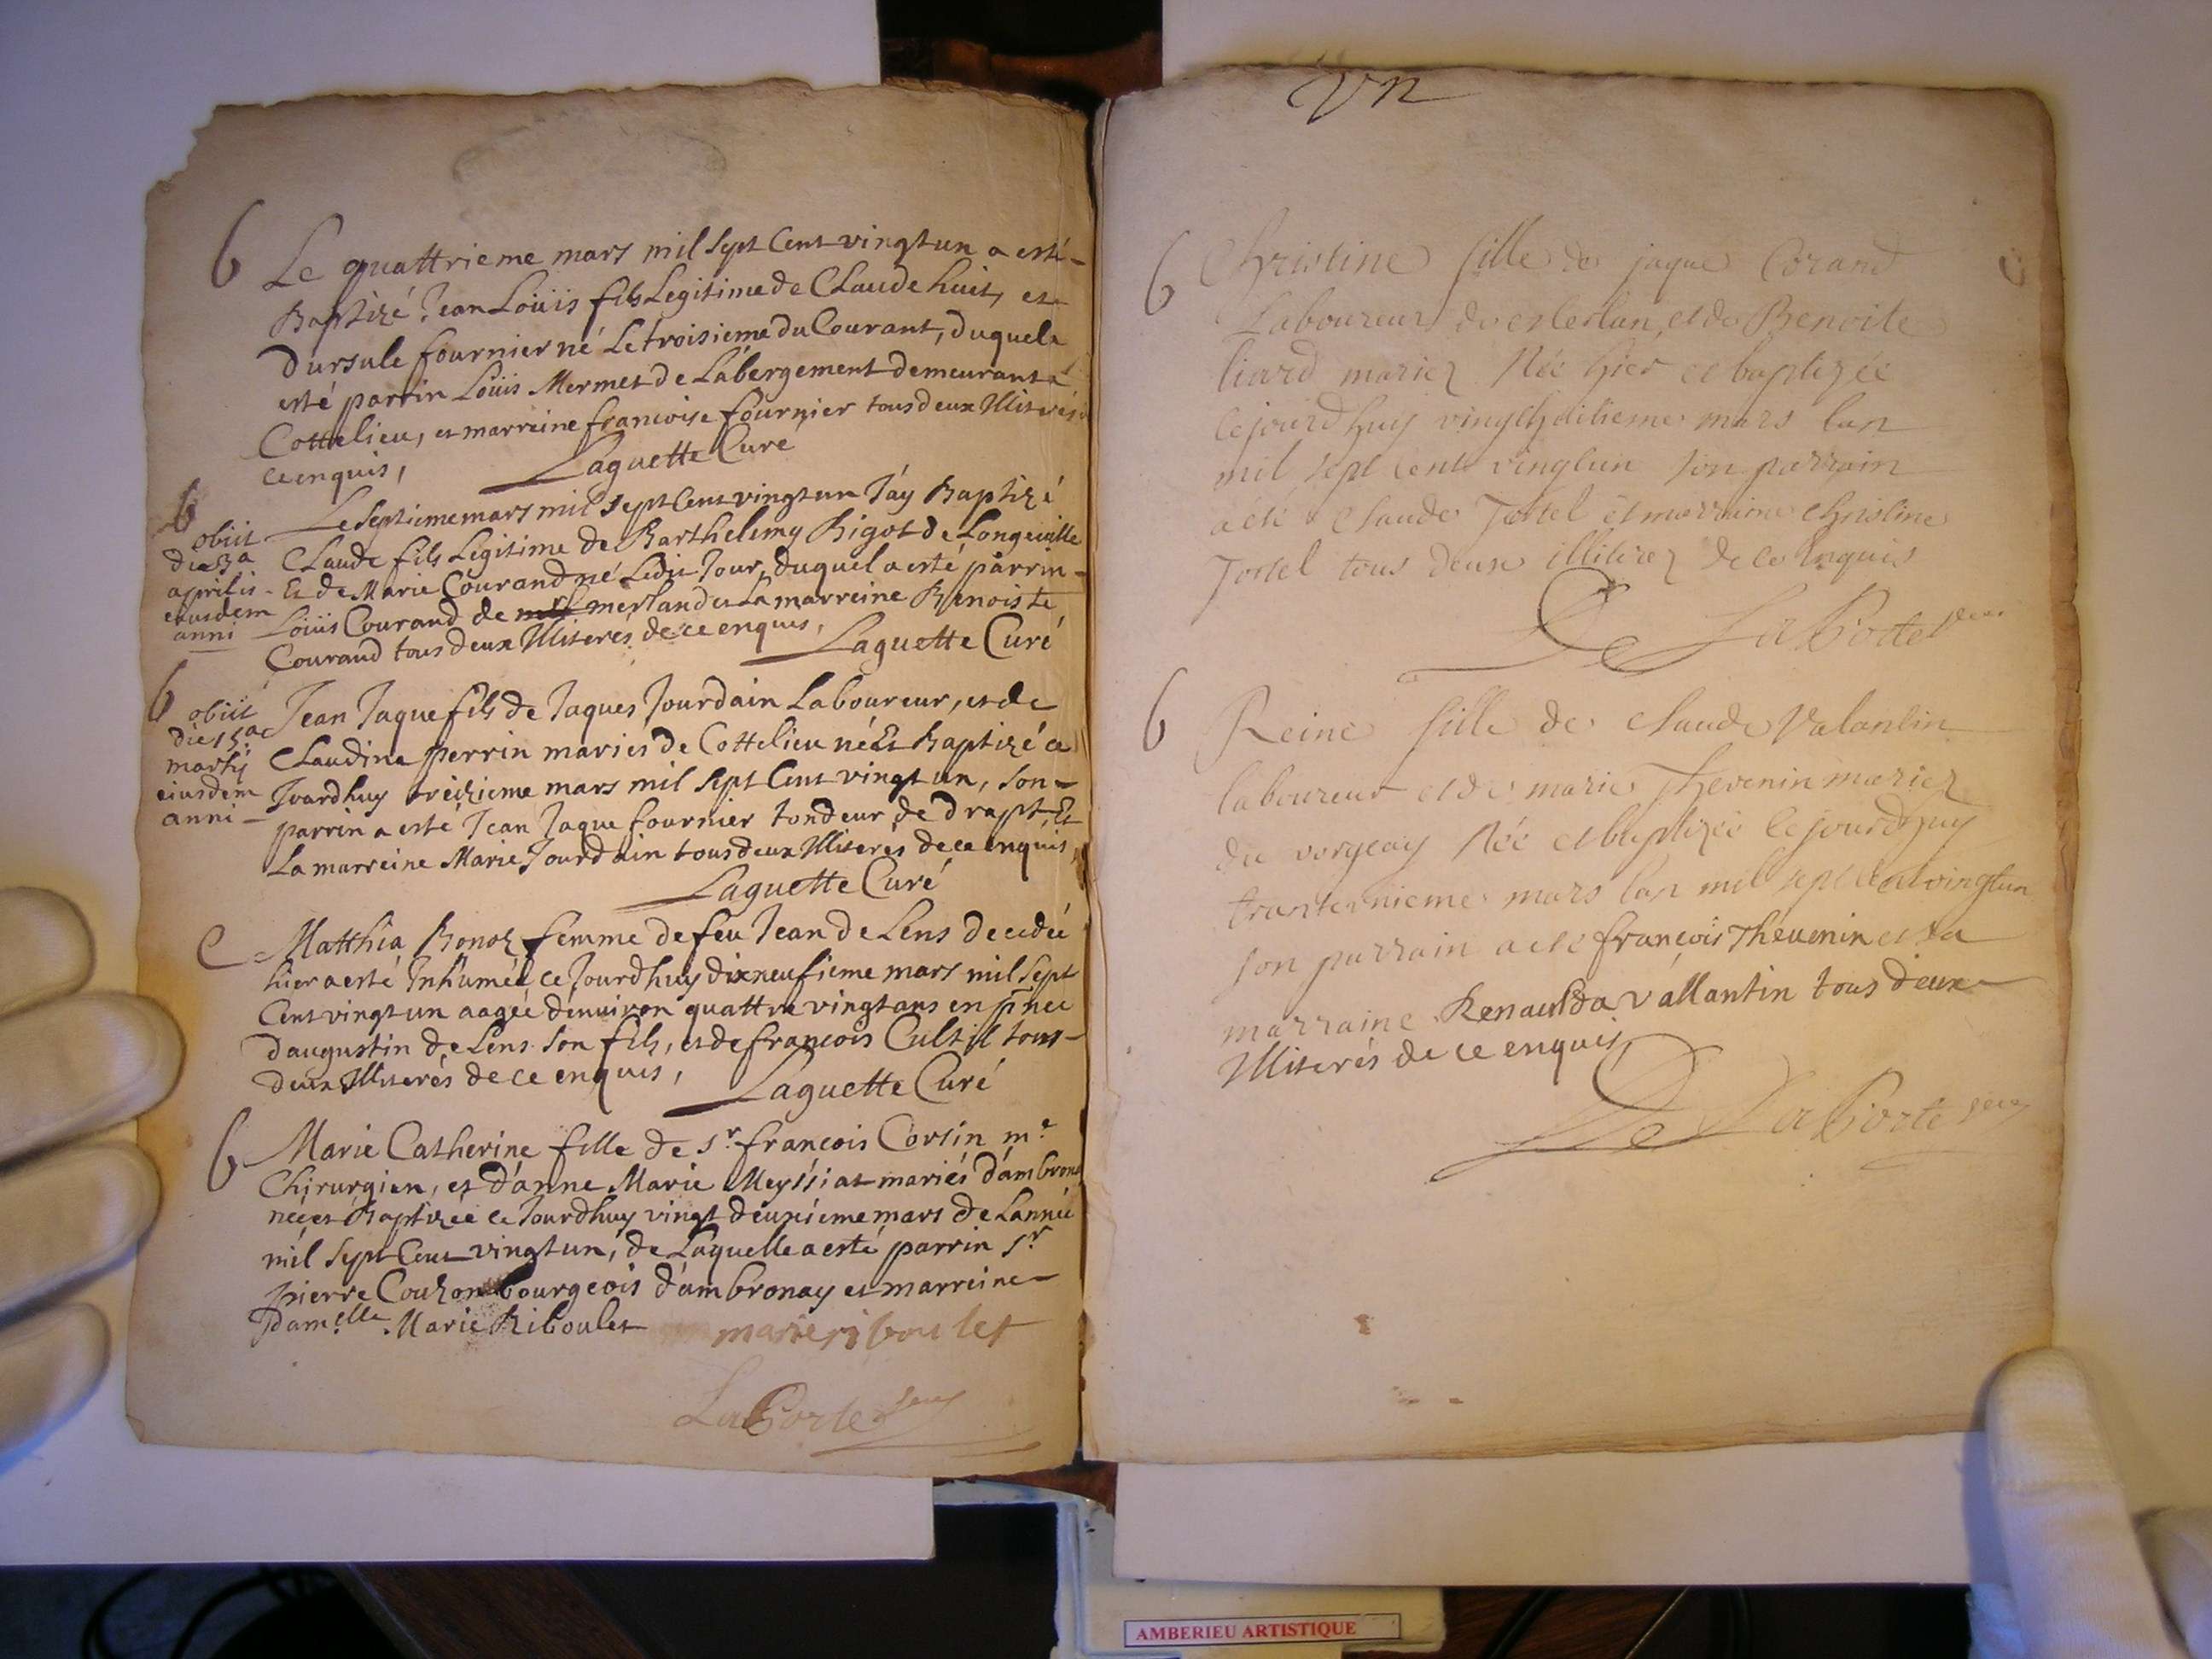 6 Le quattrieme mars mil sept Cent vingt un a esté
Baptizé Jean Loüis fils Legitime de Claude huit, et
Dursule fournier né Le troisieme du Courant, duquel a
esté parrin Loüis Mermet de Labergement demeurant a
Cottelieu, et marreine francoise fournier tous deux Illiterés
ce enquis,
Laguette Cure
6 Le Septieme mars mil Sept Cent vingt un J'ay Baptizé
obiit
die 3a
aprilis
eiusdem
anni
Claude fils Legitime de Barthelemy Bigot de Longeville
Et de Marie Courand né Ledit Jour, duquel a esté parrin
Loüis Courand de merland et La marreine Benoiste
Courand tous deux Illiterés de ce enquis,
Laguette Curé
6 Jean Jaque fils de Jaques Jourdain Laboureur, et de
obiit
die 15a
martij
eiusdem
anni
Claudine perrin mariés de Cottelieu né Et Baptizé ce
Jourdhuy treizieme mars mil sept Cent vingt un, son
parrin a esté Jean Jaque fournier tondeur de drapt, Et
La marreine Marie Jourdain tous deux Illiterés de ce enquis
Laguette Curé
C Matthia Bonoz femme de feu Jean de Lens decedée
hier a esté Inhumée ce Jourdhuy dixneufieme mars mil sept
Cent vingt un aagée d'enuiron quattre vingt ans en pñce
daugustin de Lens son fils, et de francois tous
deux Illiterés de ce enquis,
Laguette Curé
6 Marie Catherine fille de sr. francois Corsin me
Chirurgien, et d'anne Marie Meyssiat mariés d'ambronay
née et Baptizée ce Jourdhuy vingt deuxieme mars de Lannée
mil sept Cent vingt un, de Laquelle a esté parrin sr
pierre Couzon bourgeois d'ambronay et marreine
Damelle. Marie Riboulet
marie riboulet
LaPorte
vn
6 Christine fille de jaque Corand
Laboureur de et de Benoite
liard mariez Née hier et baptizée
cejourdhuy vingthuitieme mars lan
mil sept cent vingtun son parrain
a été Claude Tortel et marraine christine
Tortel tous deux illiterez de ce Enquis
De LaPorte
6 Reine fille de claude Valantin
laboureur et de marie Thevenin mariez
du vorgeay Née et baptizée cejourdhuy
mars lan mil sept cent vingtun
son parrain a eté françois Theuenin et sa
marraine Renaulda vallantin tous deux
Illiterés de ce enquis,
De LaPorte
AMBERIEU ARTISTIQUE